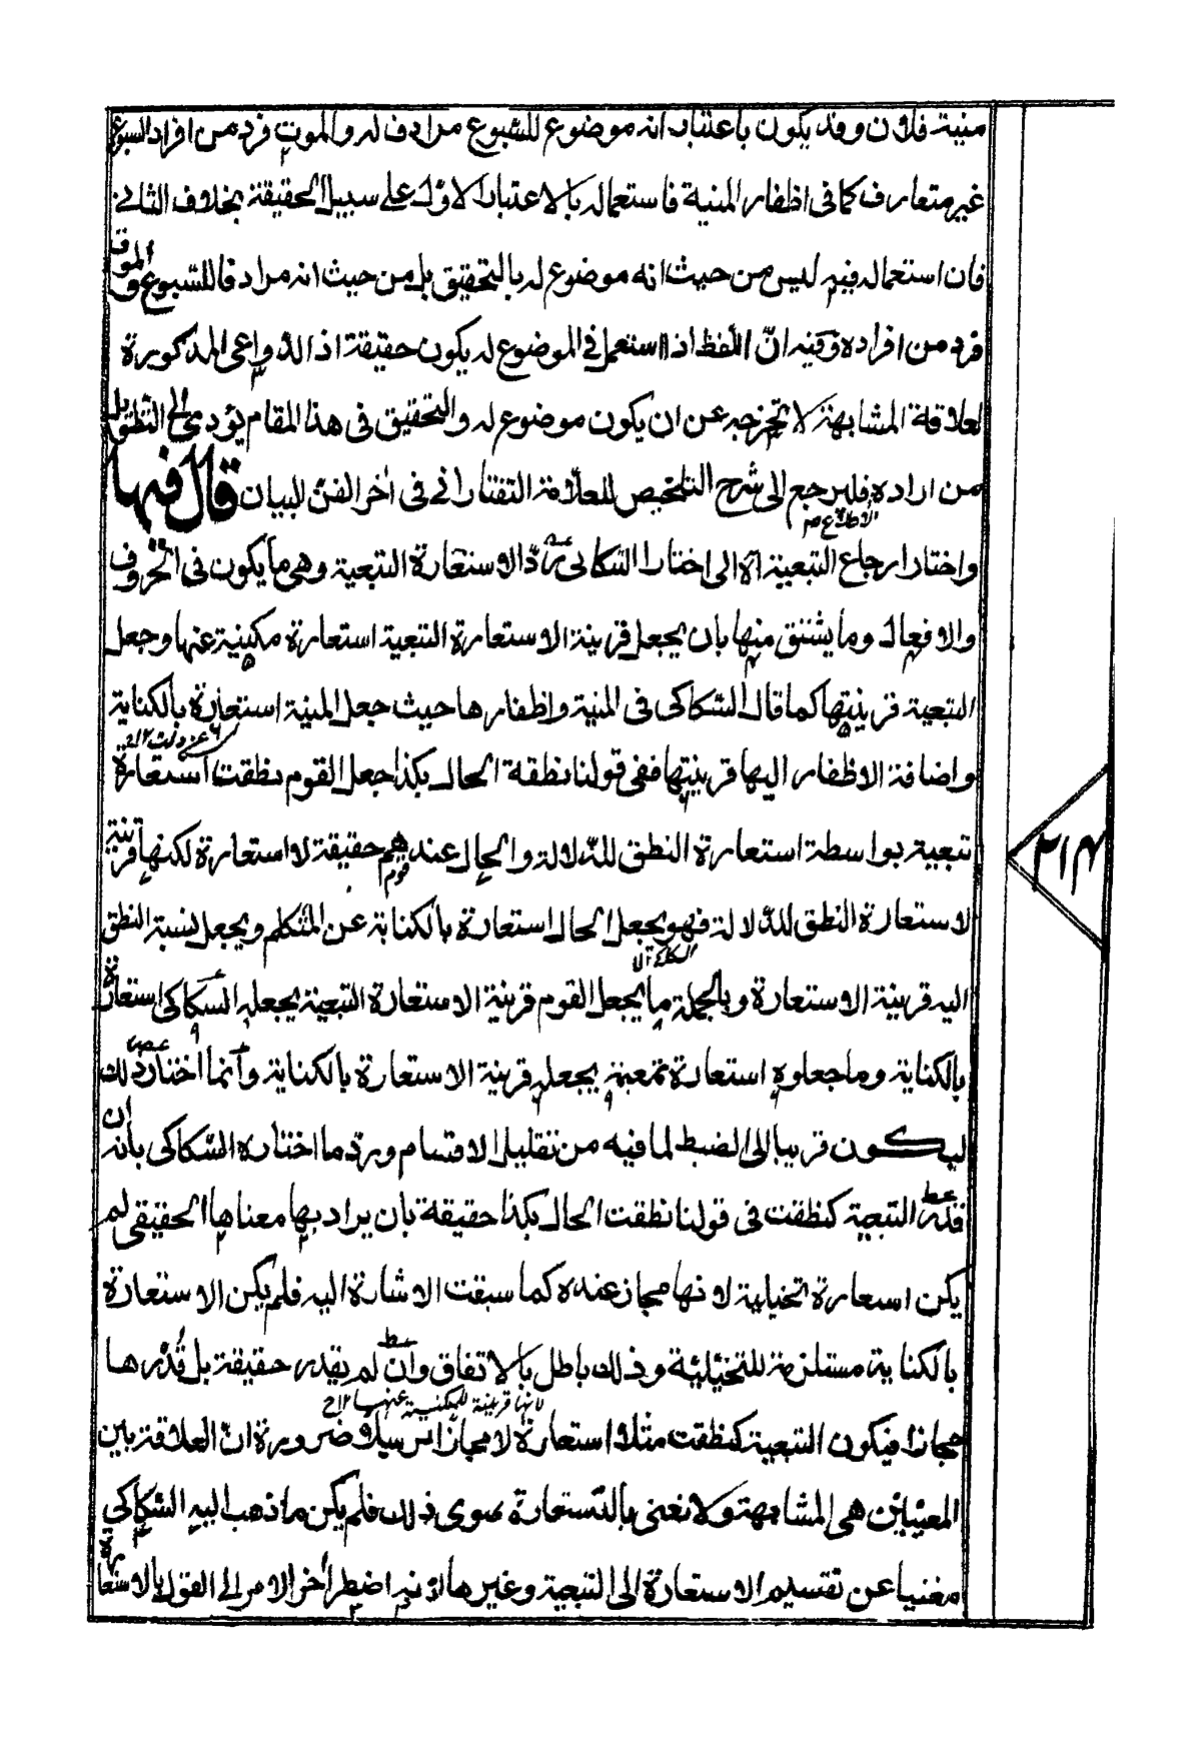 منية فلان وقد يكون باعتبار انه موضوع للسبوع مرادف له والموت فرد من افراد السبوع
غير متعارف كما فى اظفار المنية فاستعماله بالاعتبار الاول على سبيل الحقيقة بخلاف الثانى
فان استعماله فيه ليس من حيث انه موضوع له بالتحقيق بل من حيث انه مرادفا للسبوع والموت
فرد من افراده وفيه انّ اللفظ اذا استعمل فى الموضوع له يكون حقيقة اذ الدواعى المذكورة
لعلاقة المشابهة لا تخرجه عن ان يكون موضوع له والتحقيق فى هذا المقام يؤدى الى التطويل
من اراده فليرجع الى شرح التلخيص للعلامة التفتازانى فى اخر الفنّ للبيان قال فيها
الاطلاع
واختار ارجاع التبعية آه الى اختار السكاكى ردّ الاستعارة التبعية وهى ما يكون فى الحروف
والافعال وما يشتق منها بان يجعل قرينة الاستعارة التبعية استعارة مكنية عنها وجعل
التبعية قرينتها كما قال السكاكى فى المنية واظفارها حيث جعل المنية استعارة بالكناية
واضافة الاظفار اليها قرينتها ففى قولنا نطقة الحال بكذا جعل القوم نطقت استعارة
تبعية بواسطة استعارة النطق للدلالة والحال عندهم حقيقة لا استعارة لكنها قرينة
قوم
لاستعارة النطق للدلالة فهو يجعل الحال استعارة بالكناية عن المتكلم ويجعل نسبة النطق
اليه قرينة الاستعارة وبالجملة ما يجعل القوم قرينة الاستعارة التبعية يجعله السكاكى استعارة
بالكناية وما جعلوه استعارة تبعية يجعله قرينة الاستعارة بالكناية وانما اختار ذلك
ليكون قريبا الى الضبط لما فيه من تقليل الاقسام ورد ما اختاره السكاكى بانه ان
قدر التبعية كنطقت فى قولنا نطقت الحال بكذا حقيقة بان يراد بها معناها الحقيقى لم
يكن اسعارة تخيلية لانها مجاز عنده كما سبقت الاشارة اليه فلم يكن الاستعارة
بالكناية مستلزمة للتخيلية وذلك باطل بالاتفاق وان لم يقدر حقيقة بل قدرها
لانها قرينة للمكنية عنها ١٢
مجازا فيكون التبعية كنطقت مثلا استعارة لا مجازا مرسلا ضرورة انّ العلاقة بين
المعنيين هى المشابهة ولا نعنى بالاستعارة سوى ذلك فلم يكن ما ذهب اليه السكاكى
مغنيا عن تقسيم الاستعارة الى التبعية وغيرها اذ نه اضطر اخر الامر الى القول بالاستعارة
٢١٣